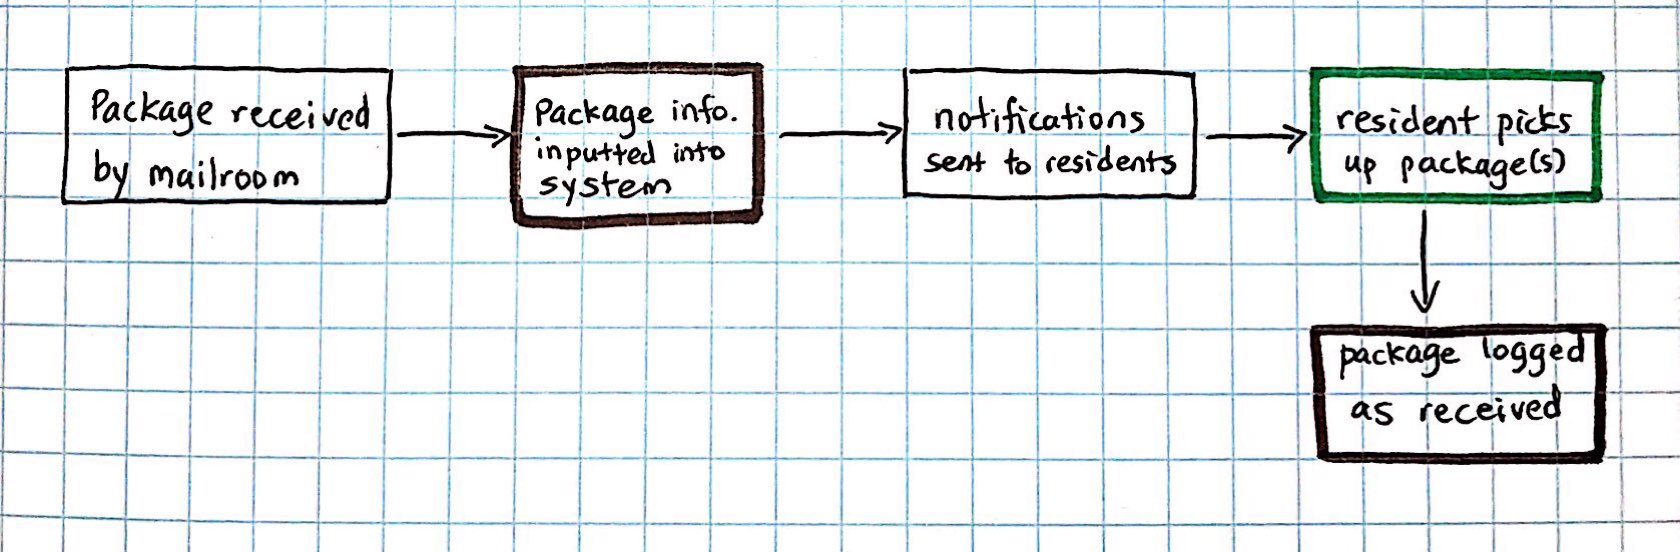 Package received
by mailroom
Package info.
inputted into
system
notifications
sent to residents
resident picks
up package(s)
package logged
as received